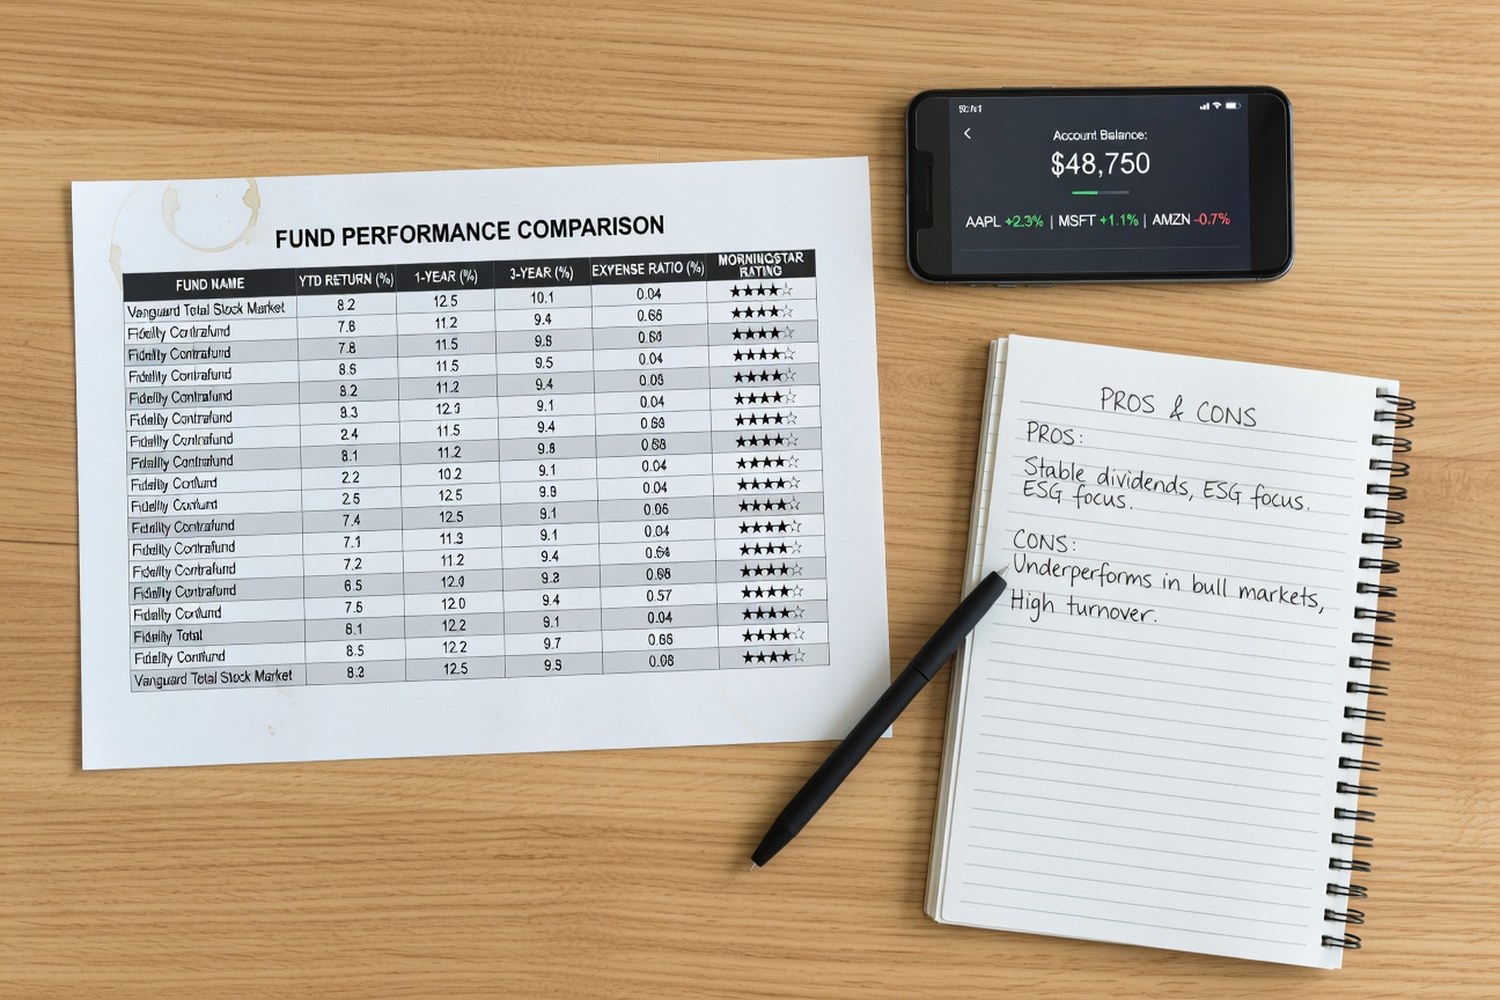 FUND PERFORMANCE COMPARISON
FUND NAME YTD RETURN (%) 1-YEAR (%) 3-YEAR (%) EXVENSE RATIO (%) MORNINGSTAR RATING
Vanguard Total Stock Market 8.2 12.5 10.1 0.04 ★★★★☆
Fidelity Contrafund 7.8 11.2 9.4 0.68 ★★★★☆
Fidelity Contrafund 7.8 11.5 9.8 0.60 ★★★★☆
Fidelity Contrafund 8.6 11.5 9.5 0.04 ★★★★☆
Fidelity Contrafund 8.2 11.2 9.4 0.08 ★★★★☆
Fidelity Contrafund 9.1 0.04 ★★★★☆
Fidelity Contrafund 2.4 11.5 9.4 0.60 ★★★★☆
Fidelity Contrafund 8.1 11.2 9.8 0.68 ★★★★☆
Fidelity 2.2 10.2 9.1 0.04 ★★★★☆
Fidelity 2.5 12.5 9.9 0.04 ★★★★☆
Fidelity Contrafund 7.4 12.5 9.1 0.06 ★★★★☆
Fidelity Contrafund 7.1 11.3 9.1 0.04 ★★★★☆
Fidelity Contrafund 7.2 11.2 9.4 0.64 ★★★★☆
Fidelity Contrafund 6.5 12.0 0.68 ★★★★☆
Fidelity 7.6 12.0 9.4 0.57 ★★★★☆
Fidelity Total 8.1 12.2 9.1 0.04 ★★★★☆
Fidelity 8.5 12.2 9.7 0.66 ★★★★☆
Vanguard Total Stock Market 8.2 12.5 9.9 0.08 ★★★★☆
Account Balance:
$48,750
AAPL +2.3% | MSFT +1.1% | AMZN -0.7%
PROS & CONS
PROS:
Stable dividends, ESG focus.
ESG focus.
CONS:
Underperforms in bull markets,
High turnover.